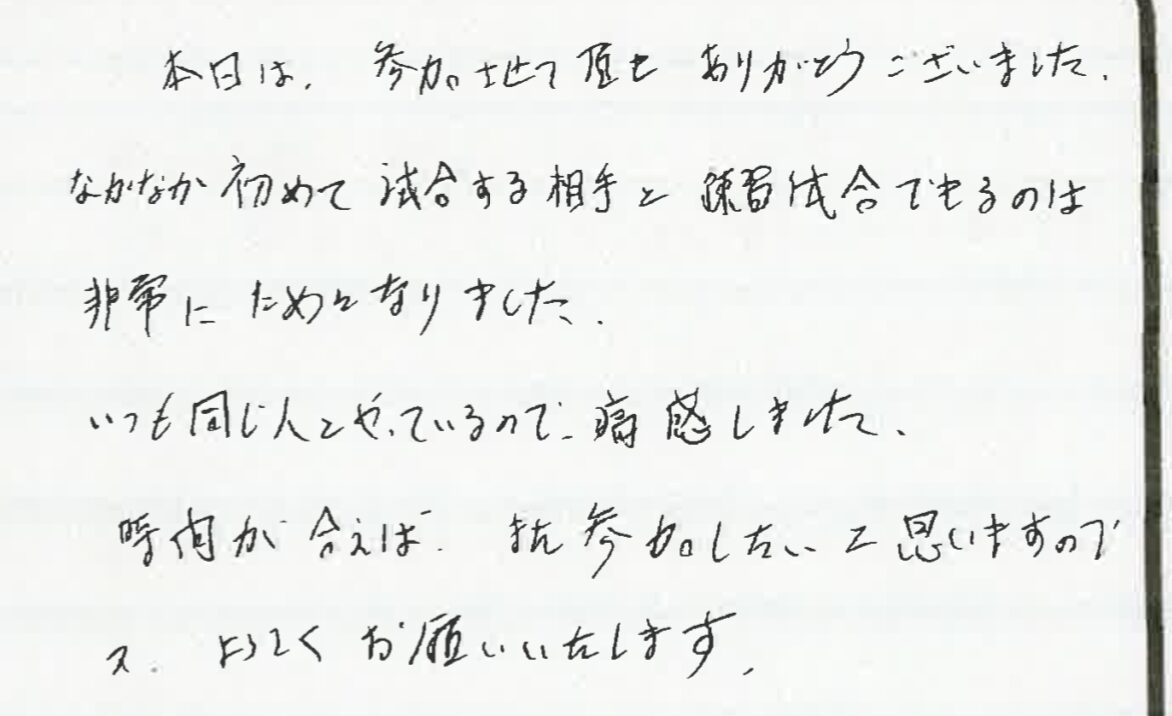 本日は、参加させて頂き ありがとうございました。
なかなか初めて試合する相手と練習試合できるのは
非常にためになりました。
いつも同じ人とやっているので、痛感しました。
時間が合えば、また参加したいと思いますので
又、よろしくお願いいたします。